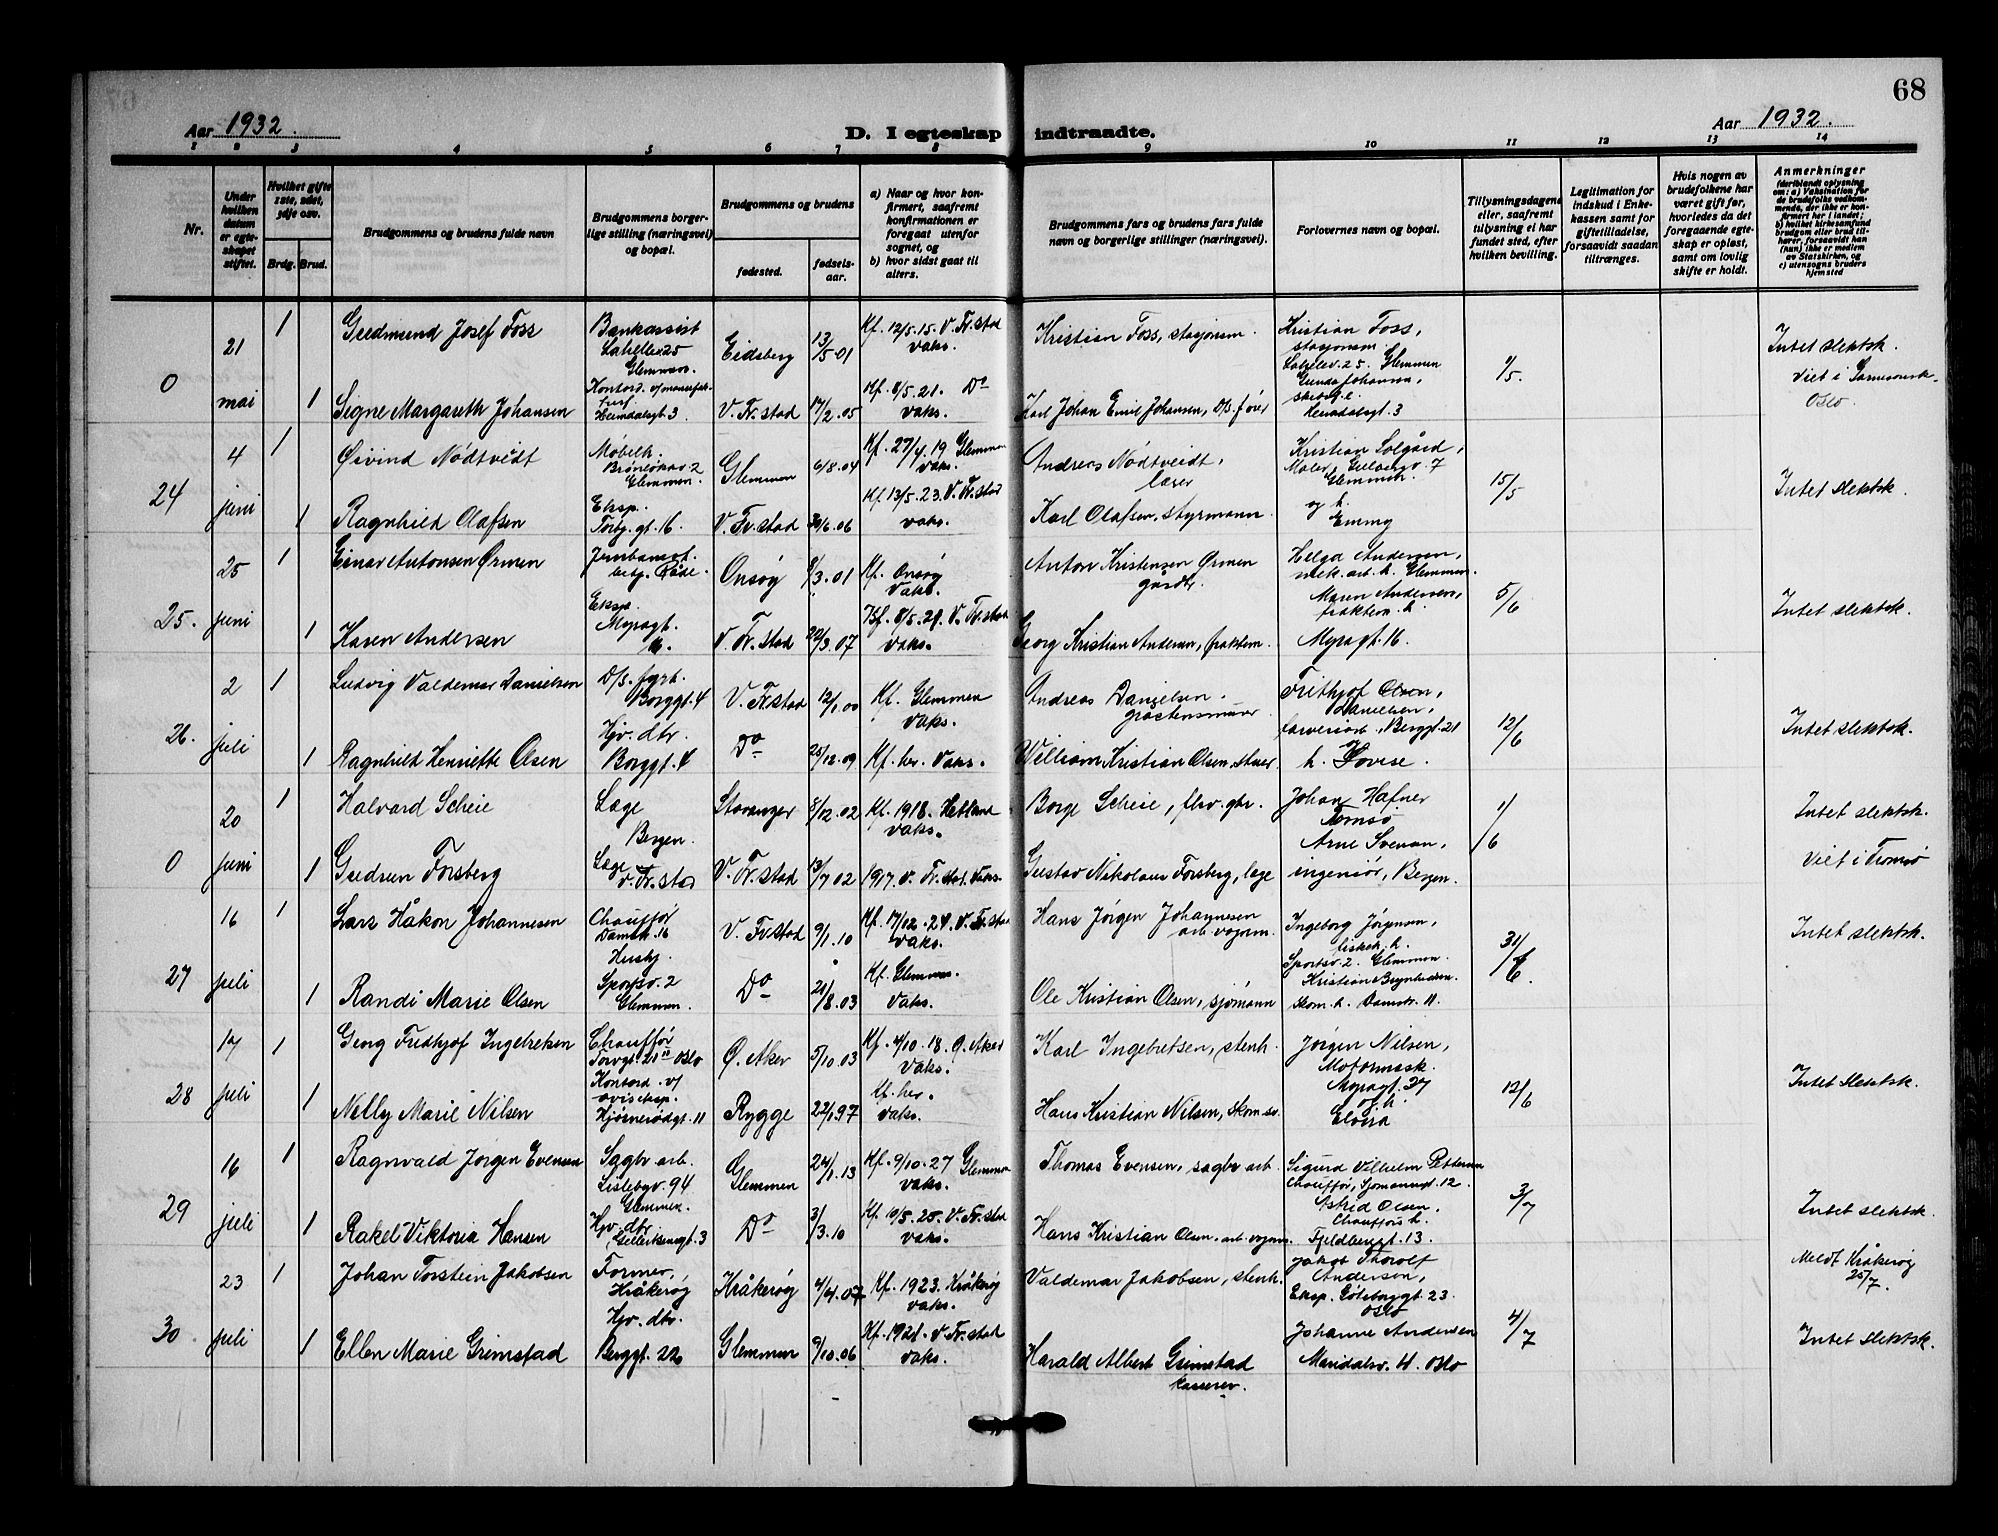 68
Aar 1932.
D. I egteskap indtraadte.
Aar 1932.
1 2 3 4 5 6 7 8 9 10 11 12 13 14
Nr.
Under hvilken datum er egteskapet stiftet.
Hvilket gifte 1ste, 2det, 3dje osv.
Brdg. Brud.
Brudgommens og brudens fulde navn
Brudgommens borgerlige stilling (næringsvei) og bopæl.
Brudgommens og brudens
fødested.
fødselsaar.
a) Naar og hvor konfirmert, saafremt konfirmationen er foregaat utenfor sognet, og
b) hvor sidst gaat til alters.
Brudgommens fars og brudens fars fulde navn og borgerlige stillinger (næringsvei).
Forlovernes navn og bopæl.
Tillysningsdagene eller, saafremt tillysning ei har fundet sted, efter hvilken bevilling.
Legitimation for indskud i Enkekassen samt for giftetilladelse, forsaavidt saadan tiltrænges.
Hvis nogen av brudefolkene har været gift før, hvorledes da det foregaaende egteskap er opløst, samt om lovlig skifte er holdt.
Anmerkninger
(deriblandt oplysning om: a) Vaksination for de brudefolks vedkommende, der ikke er konfirmert her i landet; b) hvilket kirkesamfund brudgom eller brud tilhører, forsaavidt han (hun) ikke er medlem av Statskirken, og c) utensogns bruders hjemsted
0 21 mai
1 Gudmund Josef Foss
Bankassist
Glemmen
Eidsberg 13/5 01
Kf. 12/5.15. V. Fr.stad vaks.
Kristian Foss, stasjonsm.
Kristian Foss, stasjonsm.
25. Glemmen
1/5.
Intet slektsk.
Viet i
Oslo.
1 Signe Margareth Johansen
Heimdalsgt 3
V. Fr.stad 17/2.05
Kf. 8/5.21. Do vaks.
Karl Johan Emil Johansen, D/S. fører
Heimdalsgt. 3
24 4 juni
1 Øivind Nødtvedt
Møbelh.
Glemmen.
Glemmen 6/8.04
Kf. 27/4.19 Glemmen vaks.
Andreas Nødtveidt,
Kristian Solgård,
Glemmen
og h. Emmy
15/5
Intet slektsk.
1 Ragnhild Olafsen
Eksp.
Torvgt. 16
V. Fr.stad 30/6.06
Kf 13/5.23. V. Fr.stad vaks.
Karl Olafsen, styrmann.
25. 25 juni
1 Einar Antonsen Ørmen
Jernbanegt.
Råde.
Onsøy 8/3.01
Kf. Onsøy Vaks.
Anton Kristensen Ørmen
gårdbr.
Helga Andersen,
mek. arb. h. Glemmen.
Maren Andersen,
fraktem. h.
Myragt. 16.
5/6
Intet slektsk.
1 Karen Andersen
Eksp.
Myragt. 16.
V. Fr.stad 22/3.07
Kf. 8/5.21. V. Fr.stad vaks.
Georg Kristian Andersen, fraktem.
26. 2 juli
1 Ludvig Valdemar Danielsen
D/S. fyrb.
Borggt. 4
V. Fr.stad 12/1.00
Kf. Glemmen vaks.
Andreas Danielsen.
Frithjof Olsen,
Danielsen,
Berggt. 21
h. Lovise.
12/6
Intet slektsk.
1 Ragnhild Henriette Olsen
Hjv. dtr.
Borggt. 4
Do 25/12.09
Kf. her. Vaks.
William Kristian Olsen,
0 20 juni
1 Halvard Scheie
Læge
Bergen.
Stavanger 8/12.02
Kf. 1918. Hetland vaks.
Borge Scheie,
Johan Hafner
Tromsø
Arne Svensen,
ingeniør, Bergen.
1/6
Intet slektsk.
Viet i Tromsø
1 Gudrun Forsberg
Læge
V. Fr.stad
V. Fr.stad 13/7 02
1917. V. Fr.stad. Vaks.
Gustav Nikolaus Forsberg, læge
27 16 juli
1 Lars Håkon Johannesen
Chauffør
Damstr. 16
Husbj.
V. Fr.stad 9/1.10
Kf. 17/12.24. V. Fr.stad vaks.
Hans Jørgen Johannesen
arb. vognm.
Ingeborg Jørgensen,
Sportsv. 2. Glemmen.
Kristian
Skom. h. Damstr. 11.
Intet slektsk.
1 Randi Marie Olsen
Sportsv. 2
Glemmen.
Do 21/8.03
Kf. Glemmen. Vaks.
Ole Kristian Olsen, sjømann
28 17 juli
1 Georg Fridhjof Ingebretsen
Chauffør
Torvgt. 21 Oslo
Ø. Aker 5/10.03
Kf. 4/10.18. Ø. Aker Vaks.
Karl Ingebretsen, stenh.
Jørgen Nilsen,
Motormask.
Myragt. 37
og h.
12/6
Intet slektsk.
1 Nelly Marie Nilsen
Kontord. v/ aviseksp.
Rygge 22/1.97
Kf. her. vaks.
Hans Kristian Nilsen,
29 16 juli
1 Ragnvald Jørgen Evensen
Sagbr. arb.
Lislebyv. 94
Glemmen.
Glemmen 24/1.13
Kf. 9/10.27 Glemmen vaks.
Thomas Evensen, sagbr arb.
Sigurd Vilhelm Pettersen
Chauffør, Sjømannsgt. 12.
Astrid Olsen,
Chaufførs h.
Fjeldberggt. 13.
3/7
Intet slektsk.
1 Rakel Viktoria Hansen
Hjv. dtr.
Do 3/3.10
Kf. 10/5.25. V. Fr.stad vaks.
Hans Kristian Olsen, arb. vognm.
30 23 juli
1 Johan Torstein Jakobsen
Former,
Kråkerøy
Kråkerøy 4/4.07
Kf. 1923. Kråkerøy vaks.
Valdemar Jakobsen, stenh.
Jakob Thorolf
Andersen,
Eksp. Göteborggt. 23.
Oslo
Johanne Andersen
Maridalsv. 4. Oslo
4/7
Meldt Kråkerøy
25/7.
Intet slektsk.
1 Ellen Marie Grimstad
Hjv. dtr.
Berggt. 22
Glemmen 9/10.06
Kf. 1921. V. Fr.stad vaks.
Harald Albert Grimstad
kasserer.